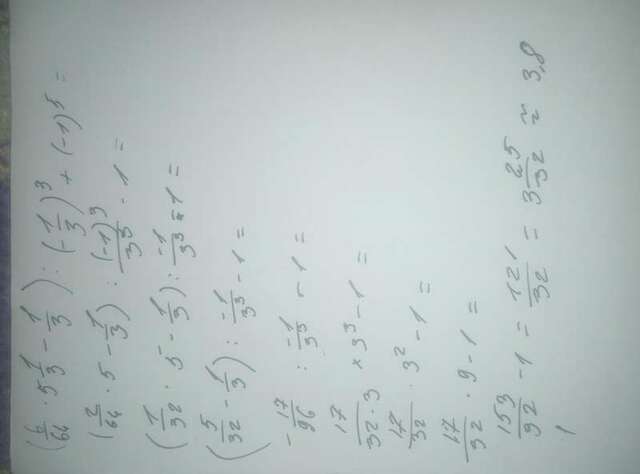 (6/64 · 5 1/3 - 1/3) : (-1/3)³ + (-1)⁵ =
(2/64 · 5 - 1/3) : (-1)³/3³ - 1 =
(1/32 · 5 - 1/3) : -1/3³ - 1 =
(5/32 - 1/3) : -1/3³ - 1 =
- 17/96 : -1/3³ - 1 =
17/32·3 × 3³ - 1 =
17/32 · 3² - 1 =
17/32 · 9 - 1 =
153/32 - 1 = 121/32 = 3 25/32 ≈ 3,8